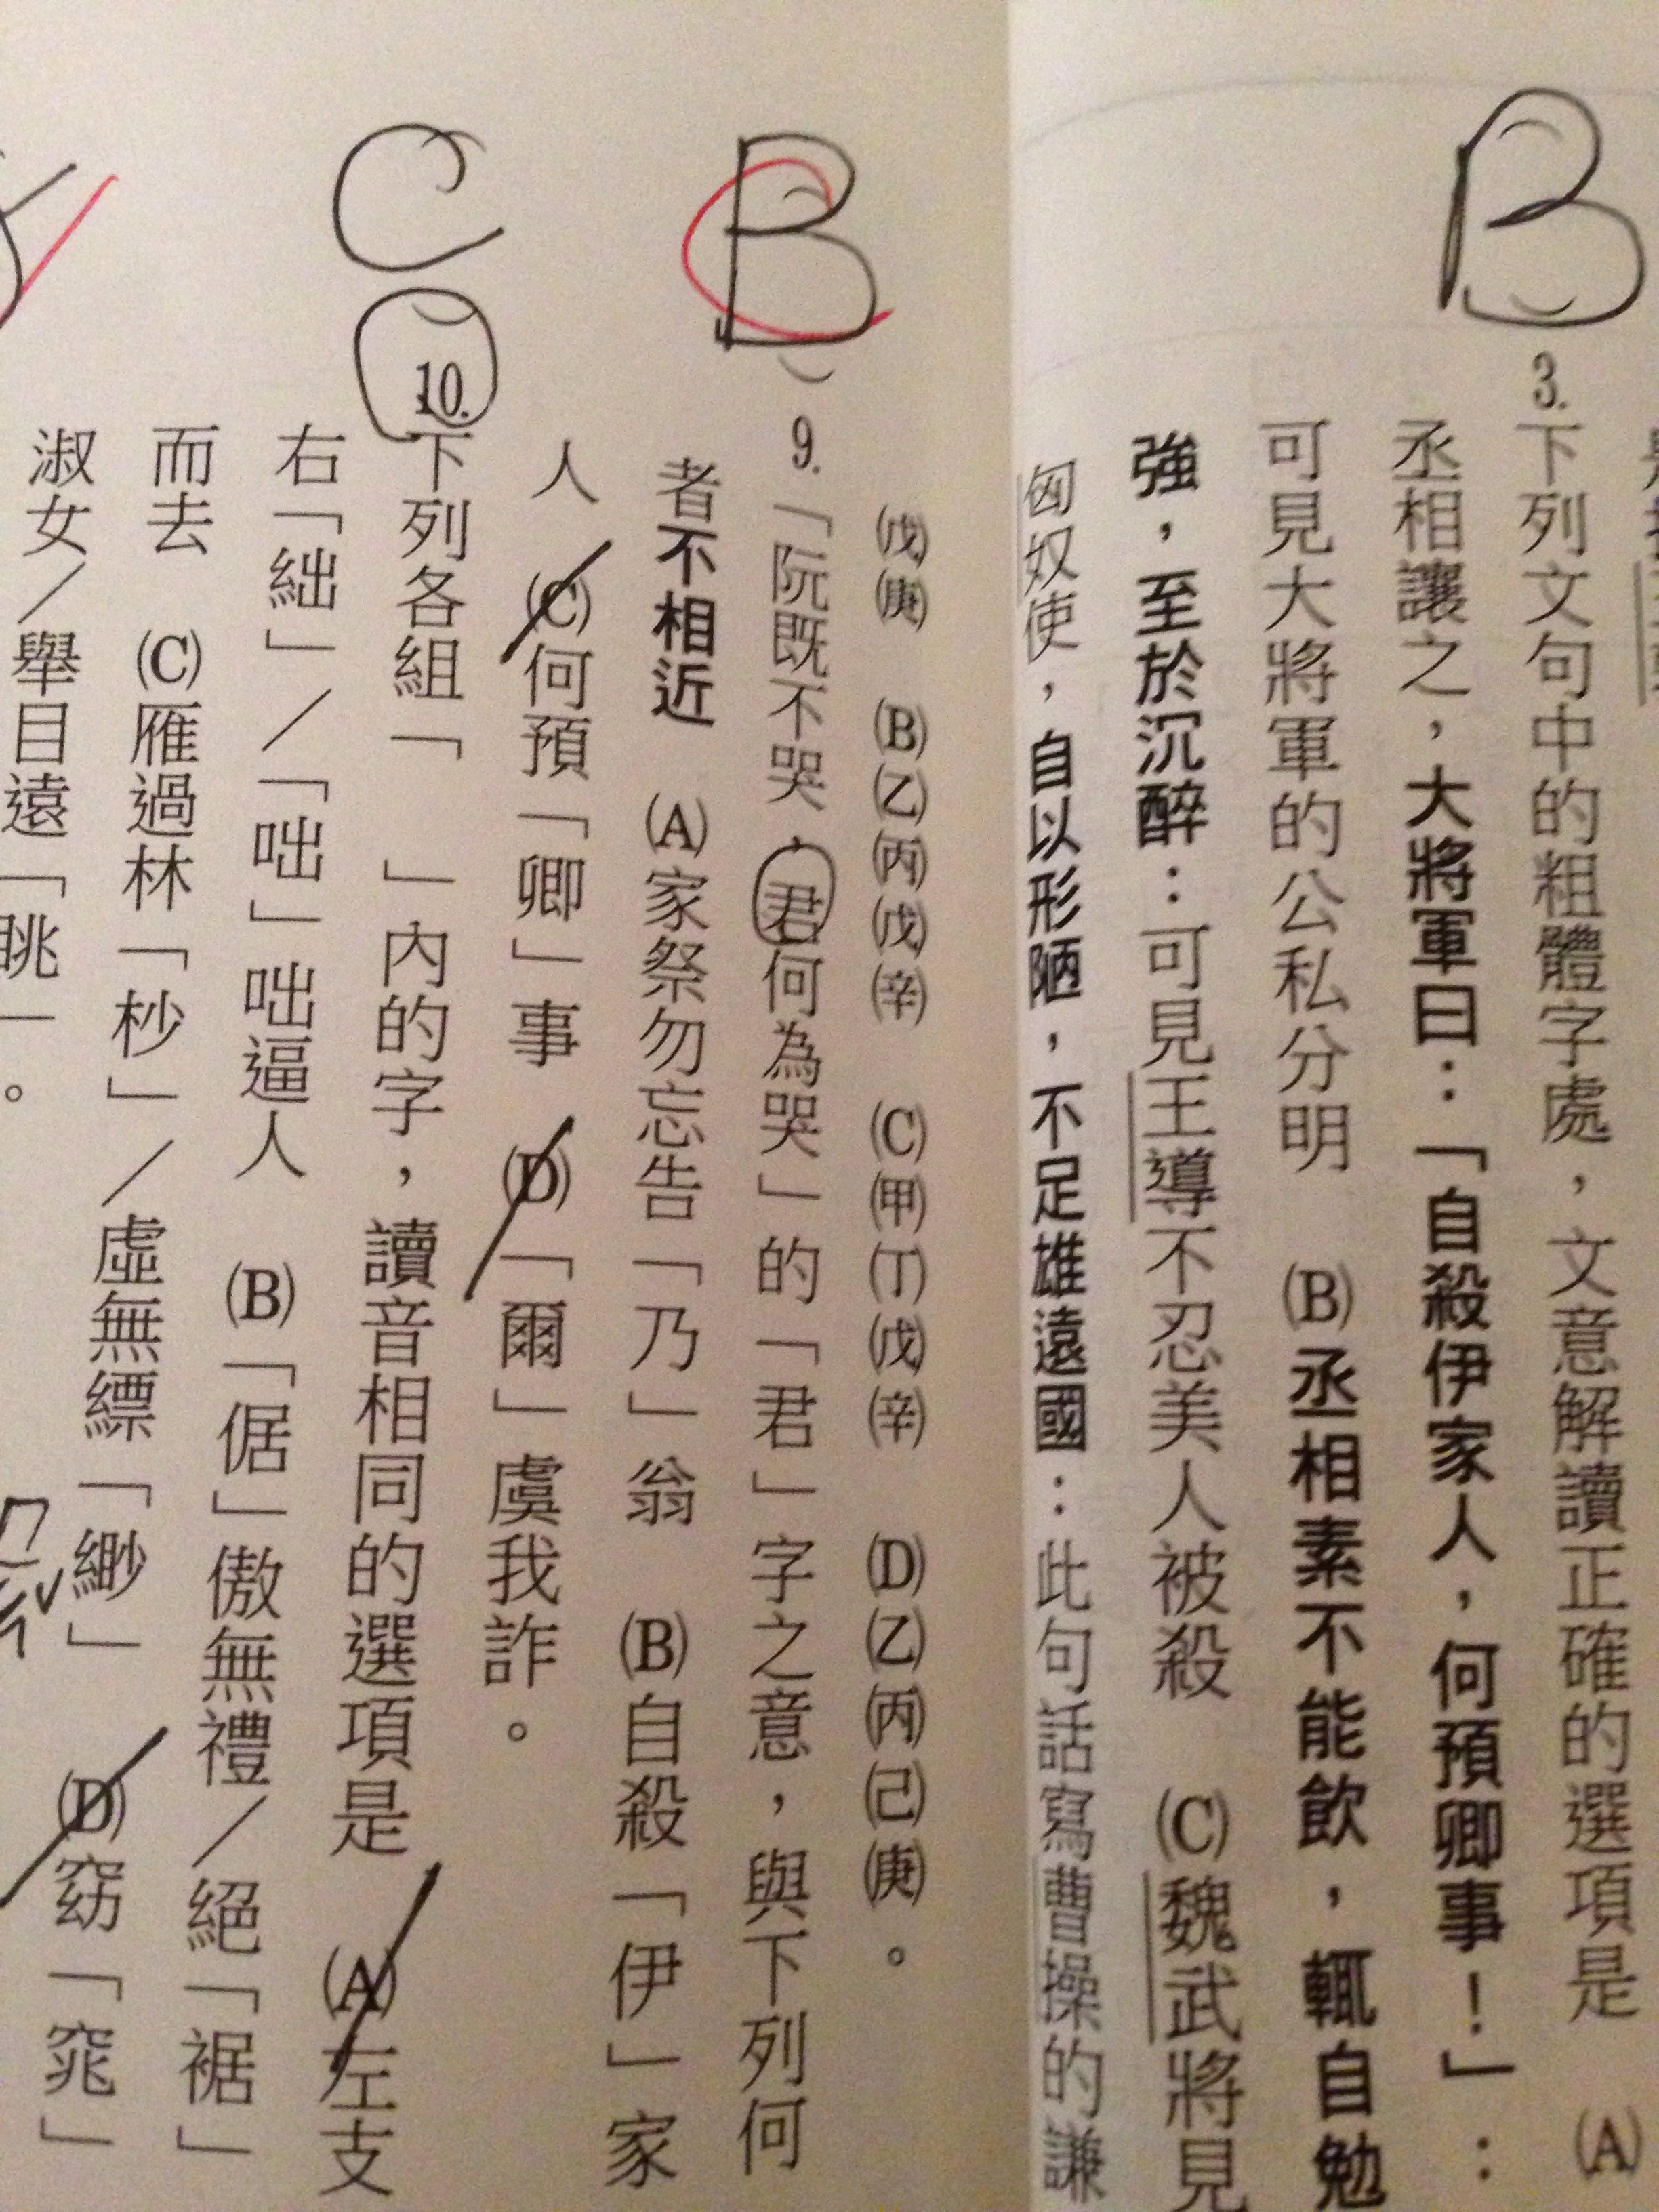 B
3.下列文句中的粗體字處，文意解讀正確的選項是 (A)
丞相讓之，大將軍曰：「自殺伊家人，何預卿事！」：
可見大將軍的公私分明 (B)丞相素不能飲，輒自勉
強，至於沉醉：可見王導不忍美人被殺 (C)魏武將見
匈奴使，自以形陋，不足雄遠國：此句話寫曹操的謙
(戊)(庚) (B)(乙)(丙)(戊)(辛) (C)(甲)(丁)(戊)(辛) (D)(乙)(丙)(己)(庚)。
B
C
9.「阮既不哭，君何為哭」的「君」字之意，與下列何
者不相近 (A)家祭勿忘告「乃」翁 (B)自殺「伊」家
人 (C)何預「卿」事 (D)「爾」虞我詐。
C
10.下列各組「 」內的字，讀音相同的選項是 (A)左支
右「絀」／「咄」咄逼人 (B)「倨」傲無禮／絕「裾」
而去 (C)雁過林「杪」／虛無縹「緲」 (D)窈「窕」
淑女／舉目遠「眺」。